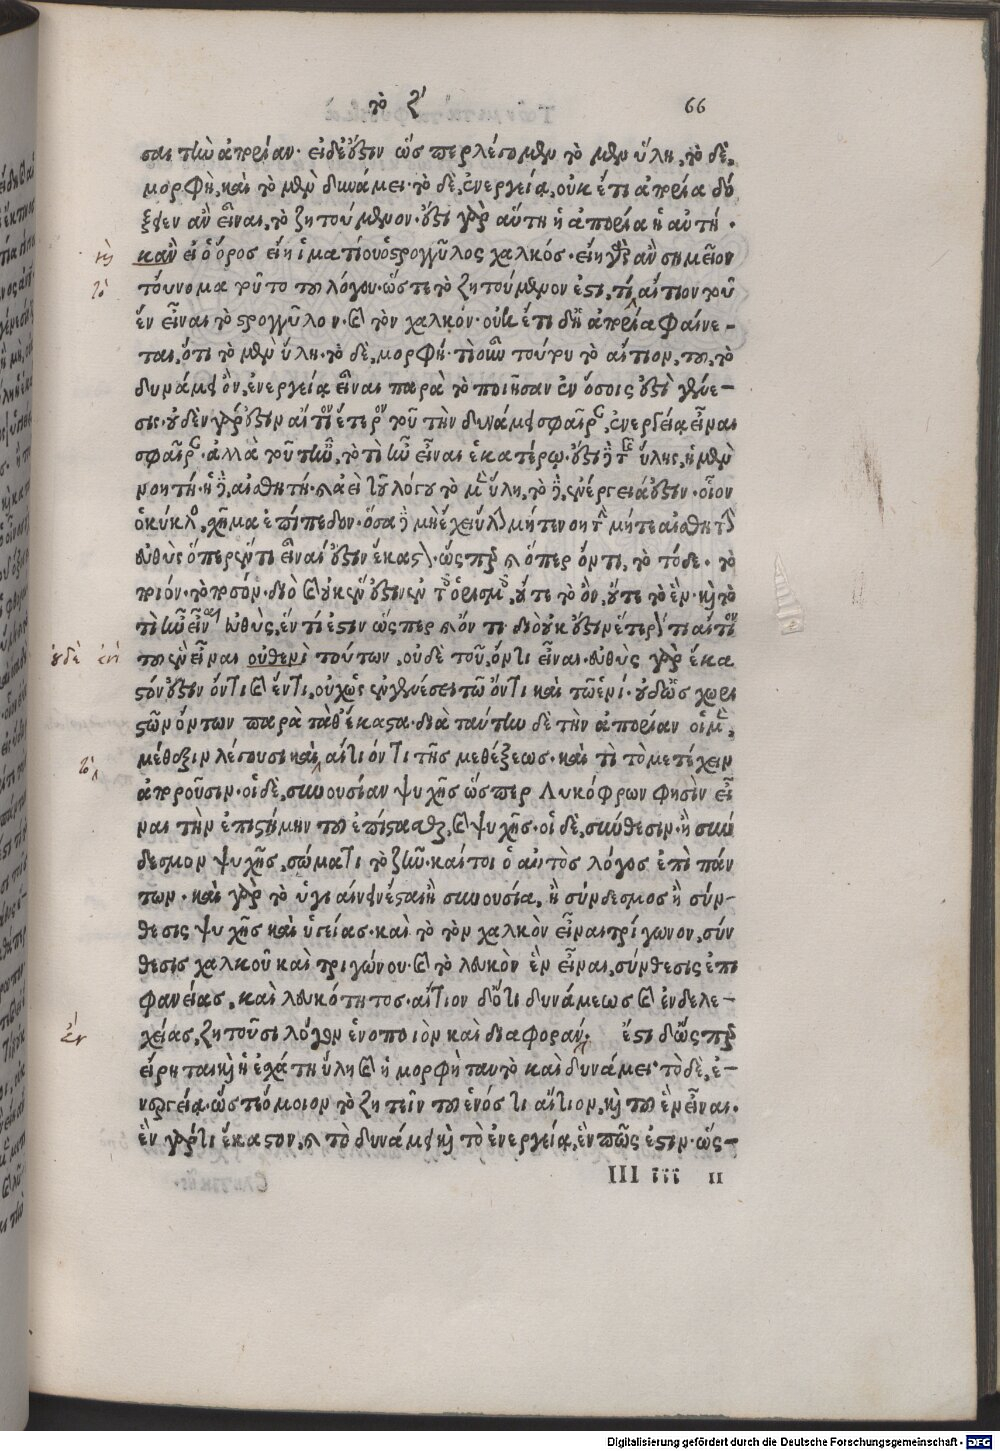 τὸ ζ´ 66
σαι τὴν ἀπορίαν. εἰ δέ ἐστιν ὥσπερ λέγομεν τὸ μὲν ὕλη, τὸ δὲ,
μορφὴ, καὶ τὸ μὲν δυνάμει· τὸ δὲ, ἐνεργείᾳ, οὐκ έτι ἀπορία δό
ξειεν ἂν εἶναι, τὸ ζητούμενον. ἔστι γὰρ αὕτη ἡ ἀπορία ἡ αὐτή.
κἂν εἰ ὁ ὅρος εἴη ἱματίου ὁ στρογγύλος χαλκός. εἴη γὰρ ἂν σημεῖον
τοὔνομα τοῦτο τοῦ λόγου. ὥστε τὸ ζητούμενον ἐστι, τί αἴτιον τοῦ
ἓν εἶναι τὸ στρογγῦλον. καὶ τὸν χαλκόν. οὐκ έτι δὴ ἀπορία φαίνε-
ται, ὅτι τὸ μὲν ὕλη. τὸ δὲ, μορφή. τί οὖν τούτου τὸ αἴτιον, τοῦ, τὸ
δυνάμει ὂν, ἐνεργείᾳ εἶναι παρὰ τὸ ποιῆσαν ἐν ὅσοις ἔστι γένε-
σις. οὐδὲν γάρ ἐστιν αἴτιον ἕτερον τοῦ τὴν δυνάμει σφαῖραν, ἐνεργείᾳ εἶναι
σφαῖραν. ἀλλὰ τοῦτ' ἦν, τὸ τὶ ἦν εἶναι ἑκατέρῳ. ἔστι δὲ τῆς ὕλης, ἡ μὲν
νοητή. ἡ δὲ, αἰσθητή. καὶ ἀεὶ τοῦ λόγου τὸ μὲν ὕλη, τὸ δὲ, ἐνέργειά ἐστιν. οἷον
ὁ κύκλος, χῆμα ἐπίπεδον. ὅσα δὲ μὴ ἔχει ὕλην μήτε νοητὴν μήτε αἰσθητὴν
εὐθὺς ὅπερ ἕν τι εἶναί ἐστιν ἕκαστον. ὥσπερ καὶ ὅπερ ὄν τι, τὸ τόδε. τὸ
ποιόν. τὸ ποσόν. διὸ καὶ οὐκ ἔνεστιν ἐν τοῖς ὁρισμοῖς, οὔτε τὸ ὂν, οὔτε τὸ ἕν. καὶ τὸ
τὶ ἦν εἶναι εὐθὺς, ἕν τί ἐστιν ὥσπερ καὶ ὄν τι. διὸ οὐκ ἔστιν ἕτερόν τι αἴτιον
τοῦ ἓν εἶναι οὐθενὶ τούτων, οὐδὲ τοῦ, ὄντι εἶναι. εὐθὺς γὰρ ἕκα
στόν ἐστιν ὄντι καὶ ἕντι, οὐχ ὡς ἐν γένεσει τῷ ὄντι καὶ τῷ ἑνί. οὐδ' ὡς χωρι
στῶν ὄντων παρὰ τὰ θ' ἕκαστα. διὰ ταύτην δὲ τὴν ἀπορίαν οἱ μὲν,
μέθεξιν λέγουσι καὶ, αἴτι όντι τῆς μεθέξεως. καὶ τὶ τὸ μετέχειν
ἀποροῦσιν. οἱ δὲ, συνουσίαν ψυχῆς ὥσπερ Λυκόφρων φησὶν εἶ
ναι τὴν ἐπιστήμην τοῦ ἐπίστασθαι, καὶ ψυχῆς. οἱ δὲ, σύνθεσιν. ἢ σύν
δεσμον ψυχῆς, σώματι τὸ ζῆν. καίτοι ὁ αὐτὸς λόγος ἐπὶ πάν
των. καὶ γὰρ τὸ ὑγιαίνειν ἔσται ἢ συνουσία, ἢ σύνδεσμος ἢ σύν-
θεσις ψυχῆς καὶ ὑγείας. καὶ τὸ τὸν χαλκὸν εἶναι τρίγωνον, σύν
θεσις χαλκοῦ καὶ τριγώνου. καὶ τὸ λευκὸν ἓν εἶναι, σύνθεσις ἐπι
φανείας, καὶ λευκότητος. αἴτιον δ' ὅτι δυνάμεως καὶ ἐνδελε-
χείας, ζητοῦσι λόγον ἑνοποιὸν καὶ διαφοράν. ἔστι δ' ὥσπερ
εἴρηται καὶ ἡ ἐχάτη ὕλη καὶ ἡ μορφὴ ταυτὸ καὶ δυνάμει τὸ δὲ, ἐ-
νεργείᾳ. ὥστε ὅμοιον τὸ ζητεῖν τοῦ ἑνός τι αἴτιον, καὶ τοῦ ἓν εἶναι.
ἓν γάρ τι ἕκαστον, καὶ τὸ δυνάμει καὶ τὸ ἐνεργείᾳ, ἕν πῶς ἐστιν. ὥς-
III iii ii
τῆς
τὸ
οὐδὲ ἑνὶ
τὸ
ἓν
Digitalisierung gefördert durch die Deutsche Forschungsgemeinschaft - DFG